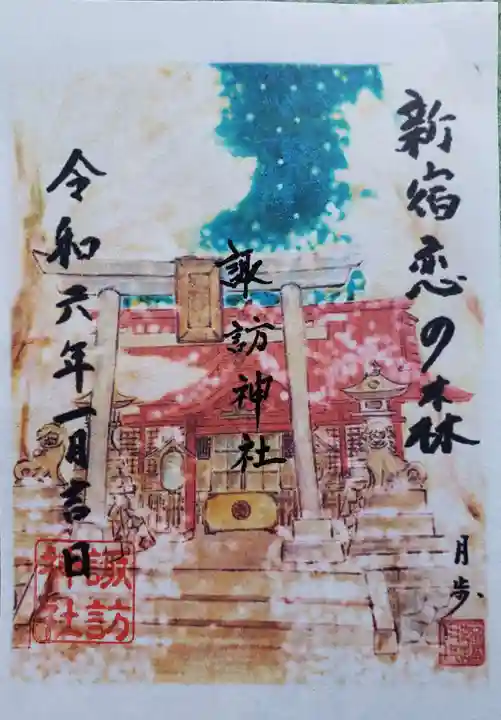 新宿恋の森
月歩
諏訪神社
令和六年一月吉日
諏訪
神社